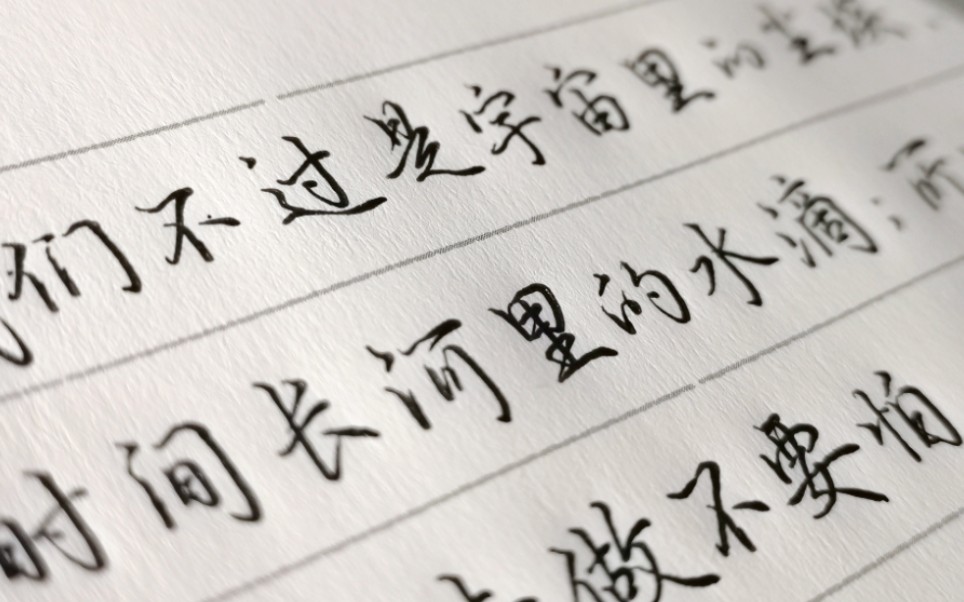 们不过是宇宙里的尘埃.
时间长河里的水滴;所
做不要怕